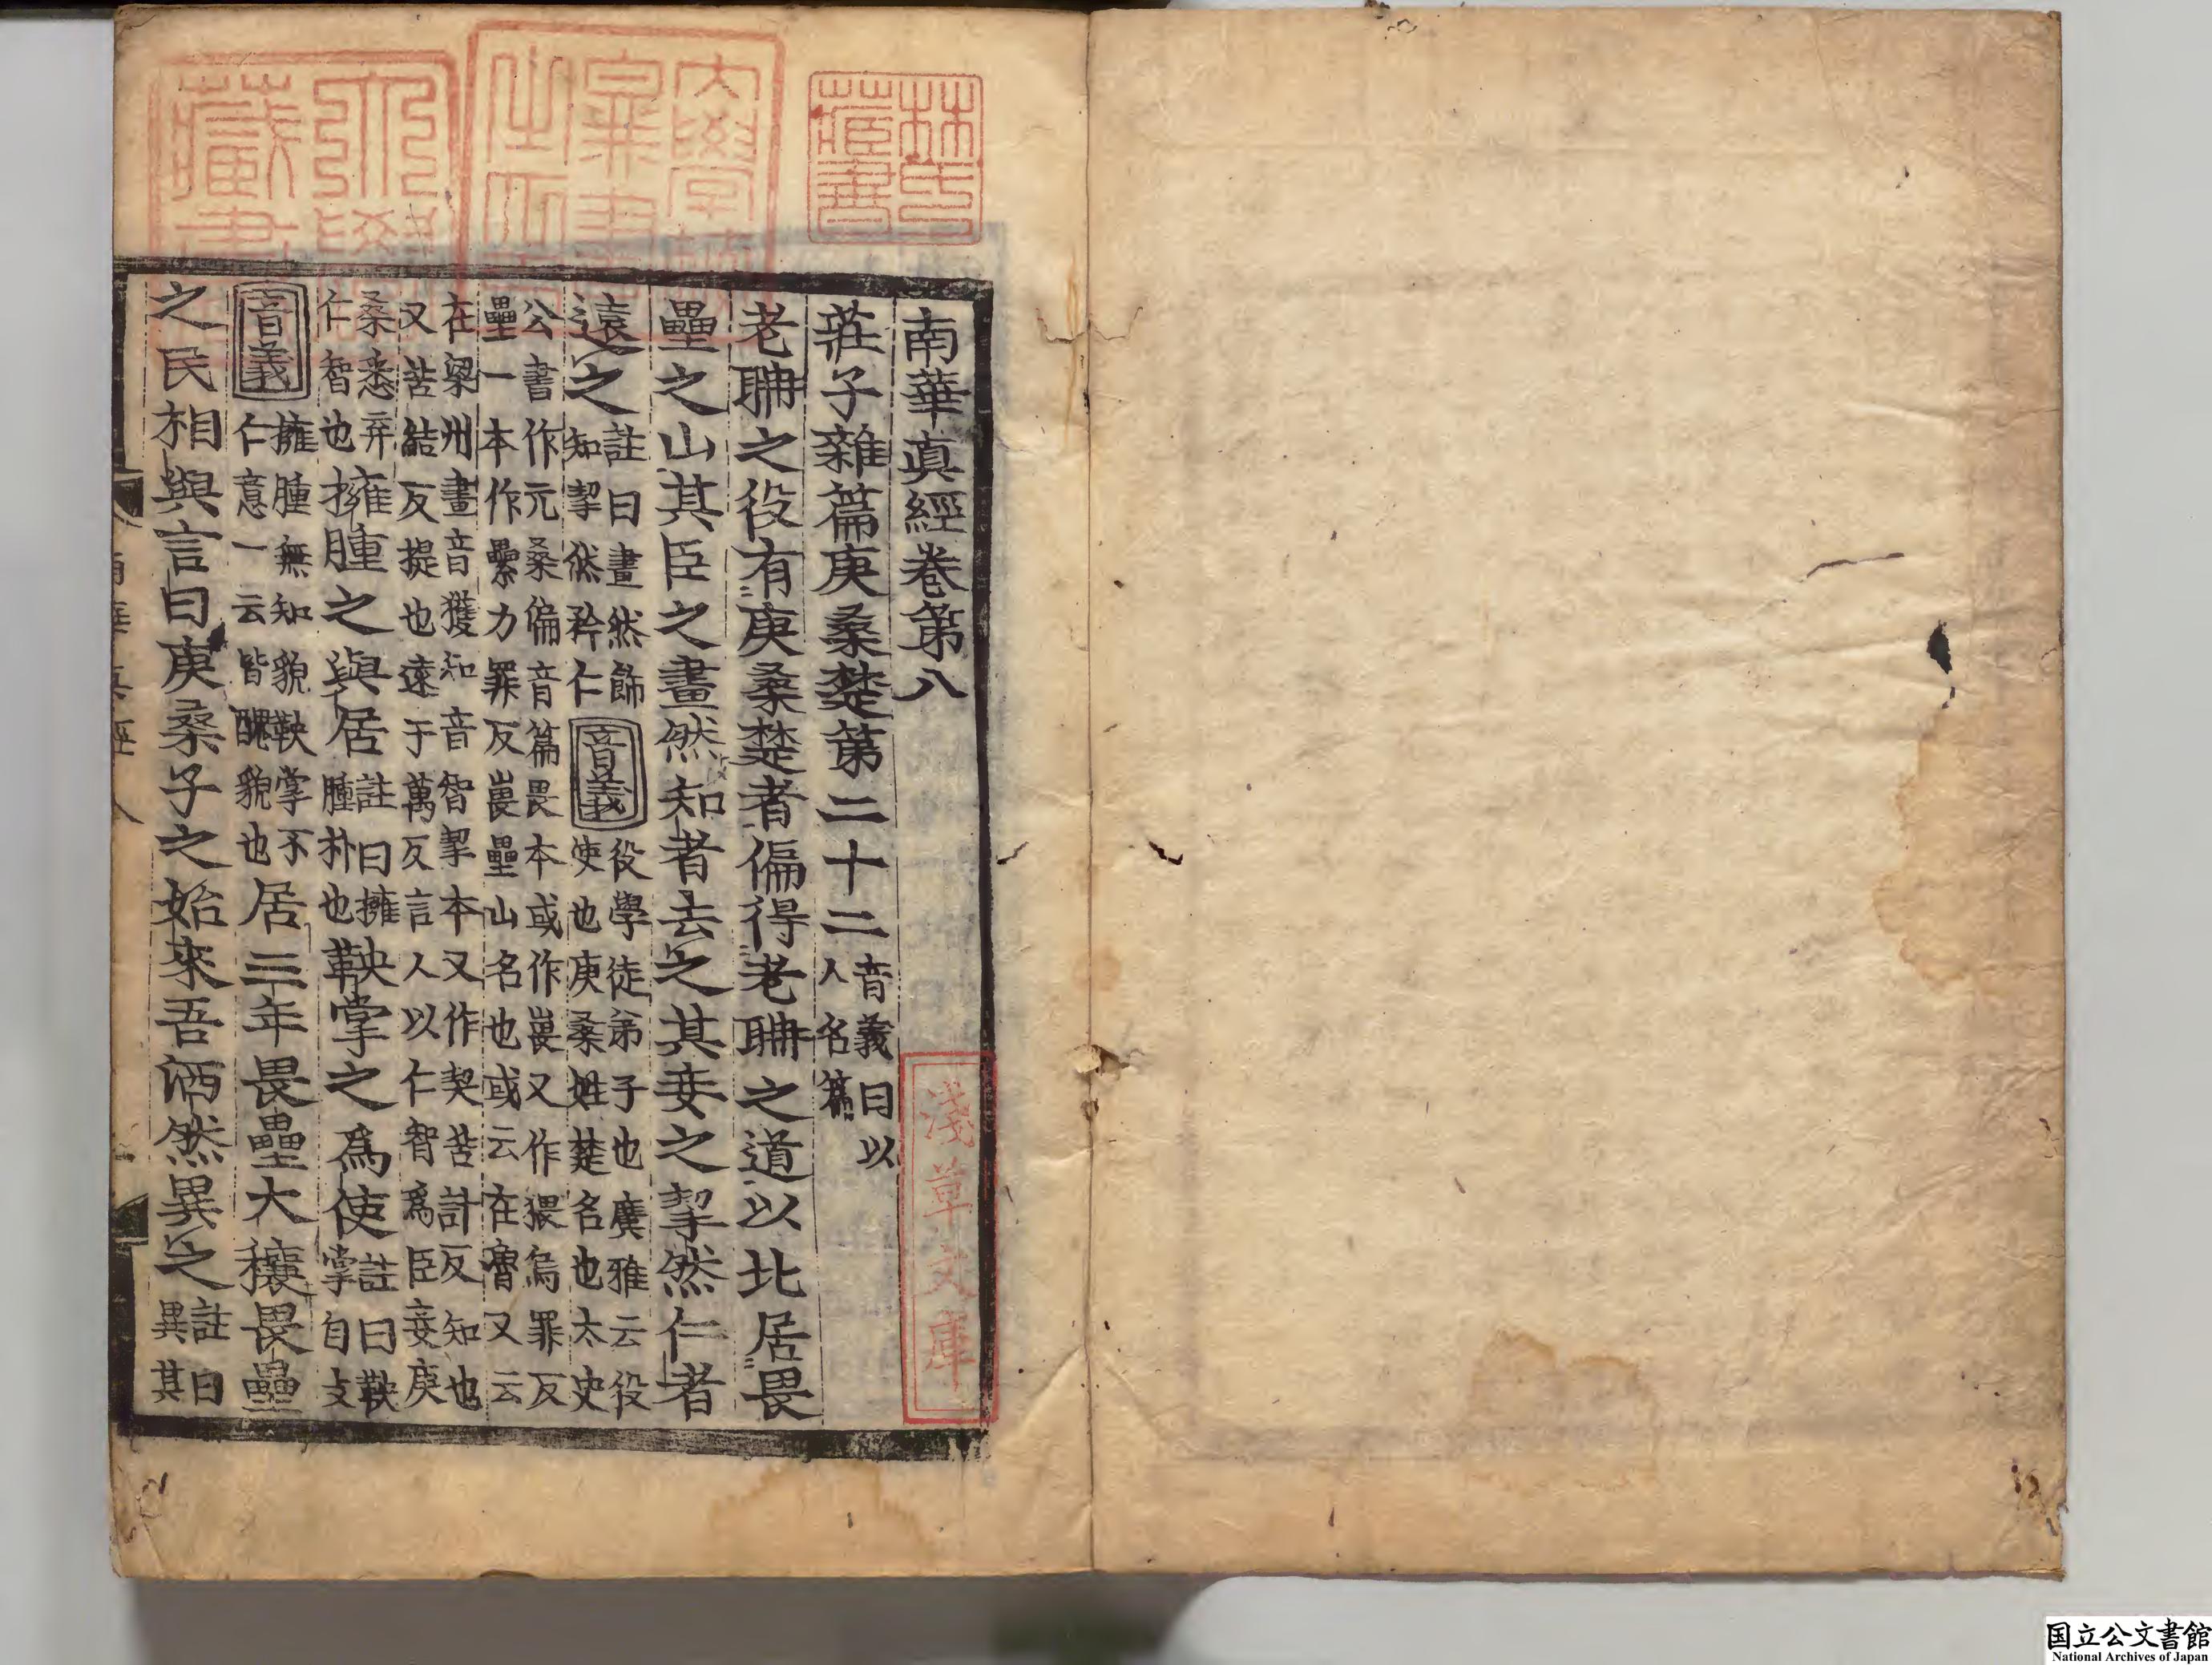 南華真經卷第八
莊子雜篇庚桑楚第二十二 音義曰以人名篇
老聃之役有庚桑楚者偏得老聃之道以北居畏
壘之山其臣之畫然知者去之其妾之挈然仁者
遠之 註曰畫然飾知挈然矜仁 音義 役學徒弟子也廣雅云役使也庚桑姓楚名也太史
公書作亢桑偏音篇畏本或作嵔又作猥烏罪反壘一本作纍力罪反嵔壘山名也或云在魯又云
在梁州畫音獲知音智挈本又作契苦計反知也又苦結反提也遠于萬反言人以仁智爲臣妾庚
桑悉弃仁智也 擁腫之與居 註曰擁腫朴也 鞅掌之爲使 註曰鞅掌自攴
音義 擁腫無知貌鞅掌不仁意一云皆醜貌也 居三年畏壘大穰畏壘
之民相與言曰庚桑子之始來吾洒然異之 註曰異其
南華真經八
林氏藏書
淺草文庫
国立公文書館
National Archives of Japan